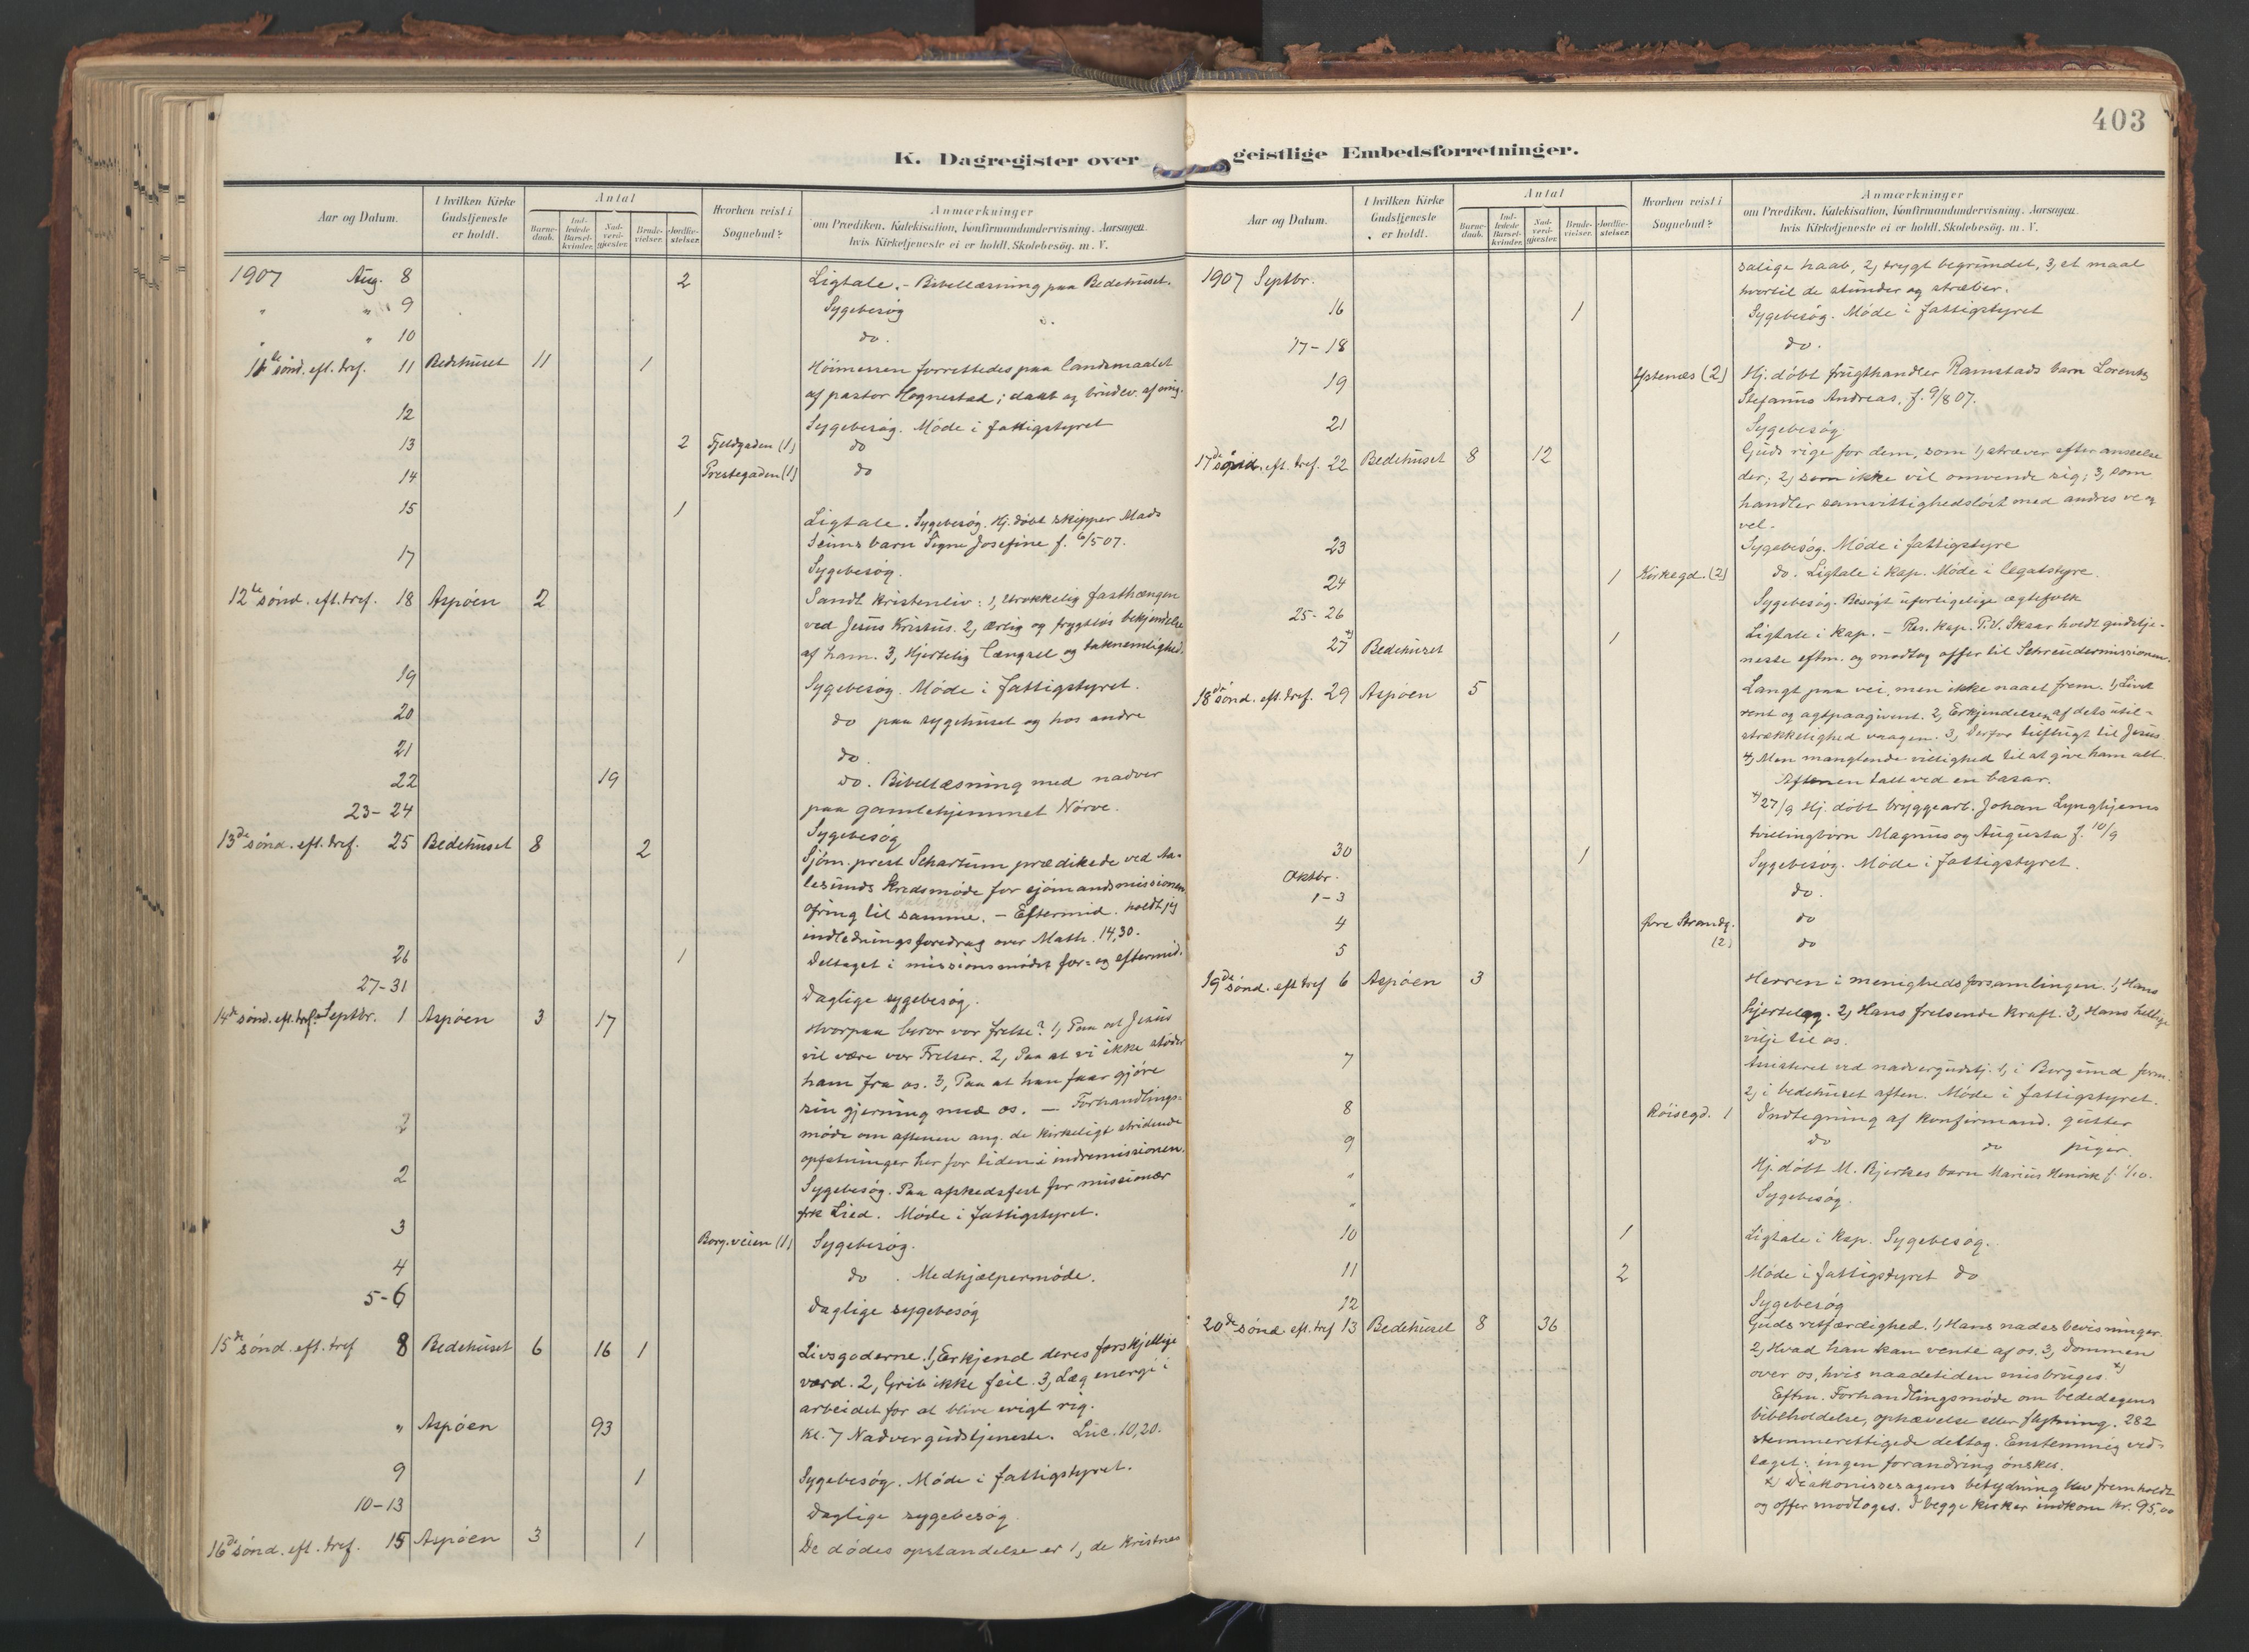 K. Dagregister over
Aar og Datum.
I hvilken Kirke Gudstjeneste er holdt.
Antal
Barnedaab.
Indledede Barselkvinder.
Nadverdgjester.
Brudevielser.
Jordfæstelser.
Hvorhen reist i Sognebud?
Anmærkninger
om Prædiken, Katekisation, Konfirmandundervisning. Aarsagen.
hvis Kirketjeneste ei er holdt. Skolebesøg. m. V.
1907 Aug. 8 2 Ligtale. - Bibellæsning paa Bedehuset.
" " 9 Sygebesøg
" " 10 do.
11te sönd. eft. tref. 11 Bedehuset 11 1 Höimessen forrettedes paa landsmaalet
af pastor Hognestad; daab og brudev. af mig.
12 Sygebesøg. Møde i fattigstyret
13 2 Fjeldgaden (1) do
14 Prestegaden (1) do
15 1 Ligtale. Sygebesøg. Hj. döbt skipper Mads
Seims barn Signe Josefine f. 6/5 07.
17 Sygebesøg.
12te sönd. eft. tref. 18 Aspöen 2 Sandt kristenliv: 1, Urokkelig fasthængen
ved Jesus Kristus. 2, ærlig og frygtløs bekjendelse
af ham. 3, Hjertelig længsel og taknemlighed.
19 Sygebesøg. Møde i fattigstyret.
20 do paa sygehuset og hos andre
21 do.
22 19 do. Bibellæsning med nadver
paa gamlehjemmet Nörve.
23-24 Sygebesøg
13de sönd. eft. tref. 25 Bedehuset 8 2 Sjöm. prest Schartum prædikede ved Aa-
lesunds kredsmøde for sjömandsmissionen
ofring til samme. - Eftermid. holdt jeg
indledningsforedrag over Math. 14,30.
26 1 Deltaget i missionsmødet for- og eftermid.
27-31 Daglige sygebesøg.
14de sönd. eft. tref. Septbr. 1 Aspöen 3 17 Hvorpaa beror vor frelse? 1, Paa at Jesus
vil være vor Frelser. 2, Paa at vi ikke støder
ham fra os. 3, Paa at han faar gjöre
sin gjerning med os. - Forhandlings-
2 møde om aftenen ang. de kirkeligt stridende
opfatninger her for tiden i indremissionen.
2 Sygebesøg. Paa afskedsfest for missionær
frk Lied. Møde i fattigstyret.
3 Borg.veien (1) Sygebesøg.
4 do . Medhjælpermøde.
5-6 Daglige sygebesøg
15de sönd. eft. tref 8 Bedehuset 6 16 1 Livsgoderne. 1, Erkjend deres forskjellige
værd. 2, Grib ikke feil. 3, Læg energi i
arbeidet for at blive evigt rig.
" Aspöen 93 Kl. 7 Nadvergudstjeneste. Luc. 10,20.
9 1 Sygebesøg. Møde i fattigstyret.
10-13 Daglige sygebesøg
16de sönd. eft. tref. 15 Aspöen 3 1 De dödes opstandelse er 1, de kristnes
403
geistlige Embedsforretninger.
Aar og Datum.
I hvilken Kirke Gudstjeneste er holdt.
Antal
Barnedaab.
Indledede Barselkvinder.
Nadverdgjester.
Brudevielser.
Jordfæstelser.
Hvorhen reist i Sognebud?
Anmærkninger
om Prædiken, Katekisation, Konfirmandundervisning. Aarsagen.
hvis Kirketjeneste ei er holdt. Skolebesøg. m. V.
1907 Septbr. salige haab, 2, trygt begrundet, 3, et maal
hvortil de stunder og stræber.
16 1 Sygebesøg. Møde i fattigstyret
17-18 do.
19 (2) Hj. döbt frugthandler Ramstads barn Lorents
Stefanus Andreas, f. 9/8 07.
21 Sygebesøg
17de sönd. eft. tref. 22 Bedehuset 8 12 Guds rige for dem, som 1, stræver efter anseelse
der; 2, som ikke vil omvende sig; 3, som
handler samvittighedslöst med andres ve og
vel.
23 Sygebesøg. Møde i fattigstyre
24 1 Kirkegd. (2) do. Ligtale i kap. Møde i legatstyre.
25-26 Sygebesøg. Besøgt uforligelige ægtefolk
27 x) Bedehuset 1 Ligtale i kap. - Res. kap. P.V. Skaar holdt gudstje-
neste eftm. og modtog offer til Schreudermissionen.
18de sönd. eft. tref. 29 Aspöen 5 Langt paa vei, men ikke naaet frem. 1, Livet
rent og agtpaagivent. 2, Erkjendelsen af dets util-
strækkelighed vaagen. 3, Derfor tilflugt til Jesus
4, Men manglende villighed til at give ham alt.
Aftenen talt ved en basar.
x) 27/9 Hj. döbt bryggearb. Johan Lynghjems
tvillingbörn Magnus og Augusta f. 10/9
30 1 Sygebesøg. Møde i fattigstyret.
Oktbr.
1-3 do.
4 Øvre Strandg. do
5 (2) do
19de sönd. eft tref 6 Aspöen 3 Herren i menighedsforsamlingen. 1, Hans
hjertelag. 2, Hans frelsende kraft. 3, Hans hellige
vilje til os.
7 Assisteret ved nadvergudstj. 1, i Borgund form.
2, i bedehuset aften. Møde i fattigstyret.
8 Röisegd. 1 Indtegning af konfirmand. gutter
9 do do piger.
" Hj. döbt M. Bjerkes barn Marius Henrik f. 1/10.
" Sygebesøg.
10 1 Ligtale i kap. Sygebesøg.
11 2 Møde i fattigstyret do
12 Sygebesøg
20de sönd eft. tref 13 Bedehuset 8 36 Guds retfærdighed. 1, Hans nades bevisninger.
2, Hvad han kan vente af os. 3, Dommen
over os, hvis naadetiden misbruges. x)
Eftm. Forhandlingsmøde om bededagens
bibeholdelse, ophævelse eller flytning. 282
stemmerettigede deltog. Enstemmig ved-
taget: ingen forandring önskes.
x) Diakonissesagens betydning blev fremholdt
og offer modtoges. I begge kirker indkom kr. 95,00